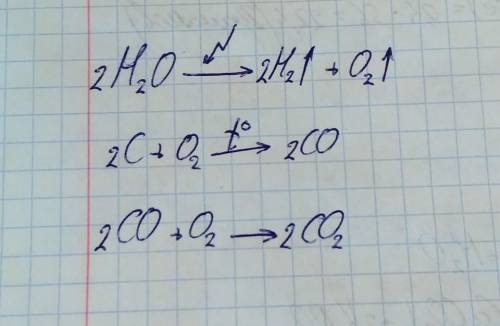 2H₂O ⟶ 2H₂↑ + O₂↑
2C + O₂ t° ⟶ 2CO
2CO + O₂ ⟶ 2CO₂